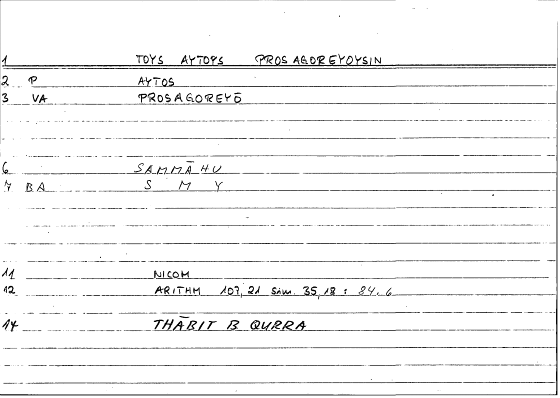 1 TOYS AYTOYS PROSAGOREYOYSIN
2 P AYTOS
3 VA PROSAGOREYŌ
6 SAMMĀHU
7 BA S M Y
11 NICOM
12 ARITHM 107, 21 Sām. 35, 18 : 84.6
14 THĀBIT B QURRA